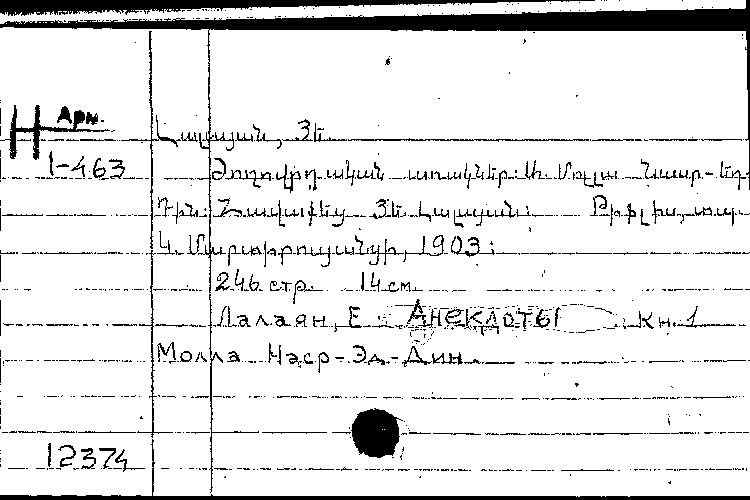 Н Арм.
Լալայան, Յե.
1-463
Ժողովրդական առակներ: Ա. Մոլլա Նասր-եդ-
Դին: Հավաքեց Յե. Լալայան: Թիֆլիս, տպ.
Կ. Մարտիրոսյանցի, 1903:
246 стр. 14 см.
Лалаян, Е. Анекдоты Кн. 1
Молла Наср-Эд-Дин.
12374